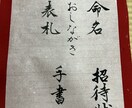 命名 招待状
おしながき
表札 手書